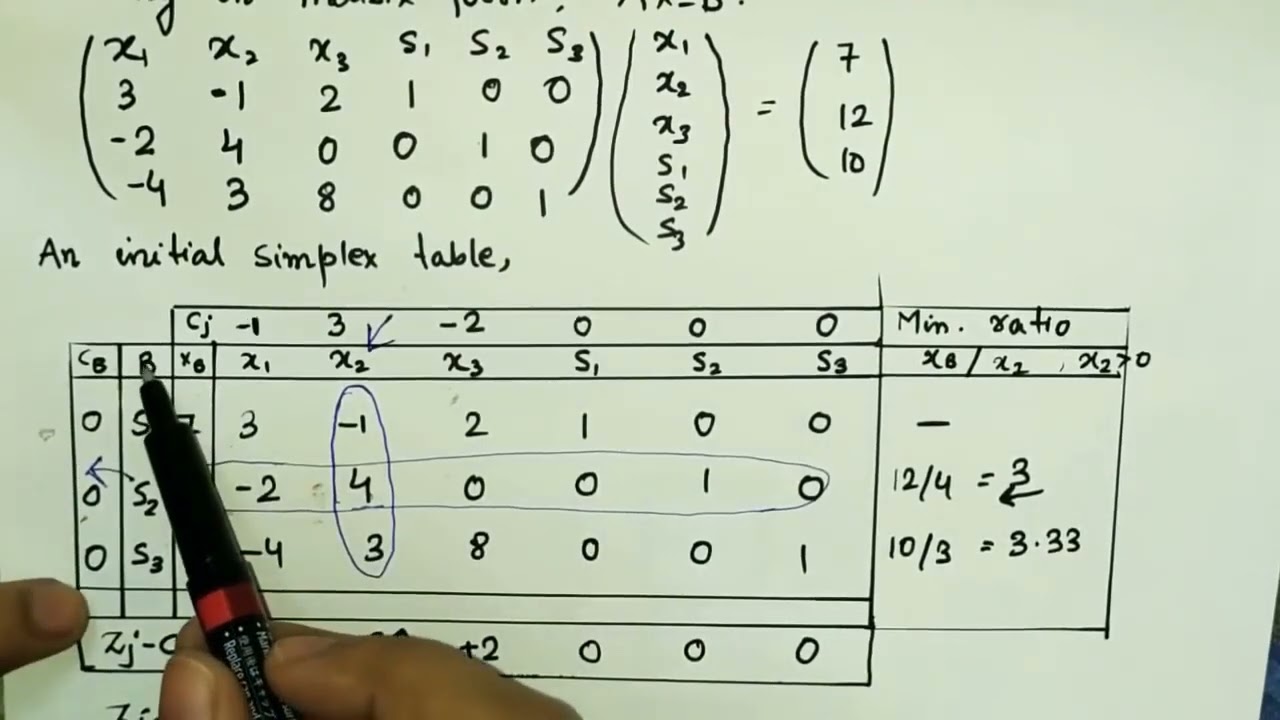 x₁ x₂ x₃ S₁ S₂ S₃ x₁ 7
3 -1 2 1 0 0 x₂ = 12
-2 4 0 0 1 0 x₃ 10
-4 3 8 0 0 1 S₁
S₂
S₃
An initial simplex table,
Cj -1 3 -2 0 0 0 Min. ratio
CB B XB x₁ x₂ x₃ S₁ S₂ S₃ xB / x₂ , x₂>0
0 7 3 -1 2 1 0 0 —
0 S₂ -2 4 0 0 1 0 12/4 = 3
0 S₃ -4 3 8 0 0 1 10/3 = 3.33
+2 0 0 0